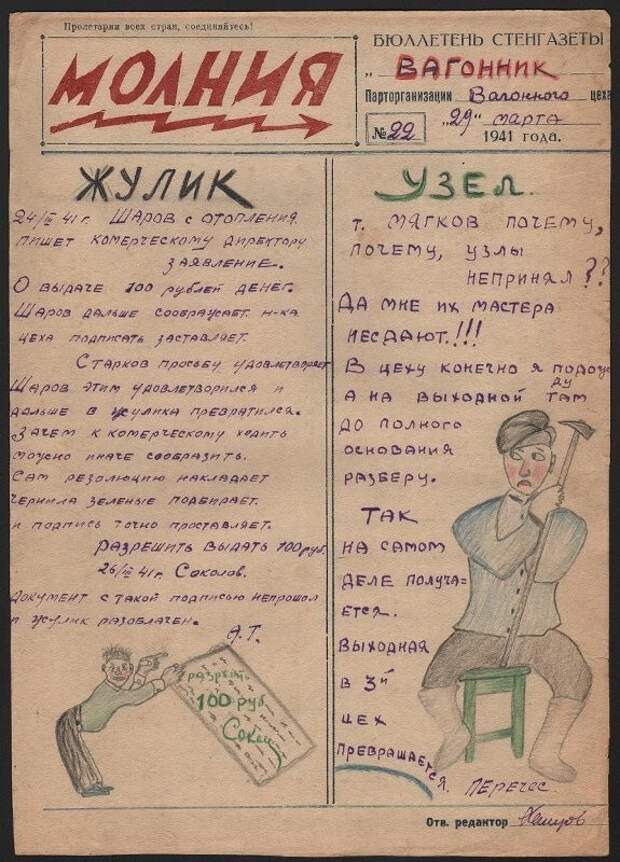 Пролетарии всех стран, соединяйтесь!
МОЛНИЯ
БЮЛЛЕТЕНЬ СТЕНГАЗЕТЫ
„ ВАГОННИК
Парторганизации Вагонного цеха
№ 22 „29" марта
1941 года.
ЖУЛИК
24/III 41 г. Шаров с отопления
пишет комерческому директору
заявление.
О выдаче 100 рублей денег.
Шаров дальше соображает н-ка
цеха подписать заставляет.
Старков просьбу удовлетворяет
Шаров этим удовлетворился и
дальше в жулика превратился.
Зачем к комерческому ходить
можно иначе сообразить.
Сам резолюцию накладает
чернила зеленые подбирает.
и подпись точно проставляет.
Разрешить выдать 100 руб.
26/III 41 г. Соколов.
Документ с такой подписью непрошол
и жулик разоблачен.
А.Т.
разрешить
100 руб
Сокол
УЗЕЛ.
т. Мягков почему,
почему, узлы
непринял??
Да мне их мастера
несдают.!!!
В цеху конечно я подожду
а на выходной там
до полного
основания
разберу.
Так
на самом
деле получа-
ется.
выходная
в 3й
цех
превращается. Перечес.
Отв. редактор